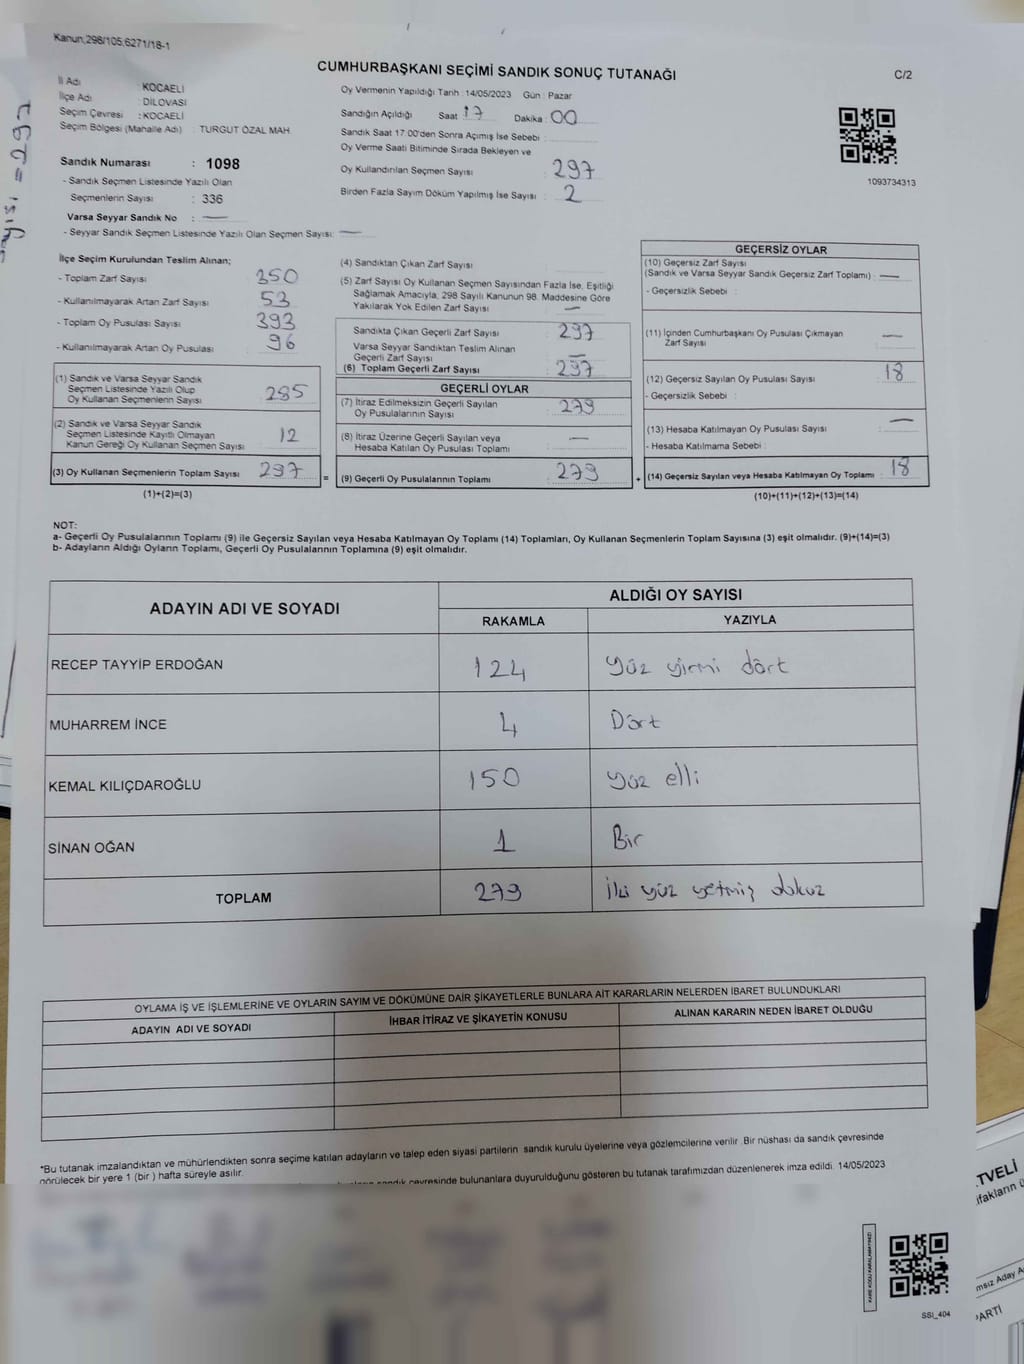 Kanun,298/105;6271/18-1
CUMHURBAŞKANI SEÇİMİ SANDIK SONUÇ TUTANAĞI
C/2
İl Adı : KOCAELİ
İlçe Adı : DİLOVASI
Seçim Çevresi : KOCAELİ
Seçim Bölgesi (Mahalle Adı) : TURGUT ÖZAL MAH.
Sandık Numarası : 1098
- Sandık Seçmen Listesinde Yazılı Olan
Seçmenlerin Sayısı : 336
Varsa Seyyar Sandık No : —
- Seyyar Sandık Seçmen Listesinde Yazılı Olan Seçmen Sayısı: —
Oy Vermenin Yapıldığı Tarih : 14/05/2023 Gün : Pazar
Sandığın Açıldığı Saat : 17 Dakika : 00
Sandık Saat 17:00'den Sonra Açımış İse Sebebi :
Oy Verme Saati Bitiminde Sırada Bekleyen ve
Oy Kullandırılan Seçmen Sayısı : 297
Birden Fazla Sayım Döküm Yapılmış İse Sayısı : 2
1093734313
İlçe Seçim Kurulundan Teslim Alınan;
- Toplam Zarf Sayısı : 350
- Kullanılmayarak Artan Zarf Sayısı : 53
- Toplam Oy Pusulası Sayısı : 393
- Kullanılmayarak Artan Oy Pusulası : 96
(1) Sandık ve Varsa Seyyar Sandık
Seçmen Listesinde Yazılı Olup
Oy Kullanan Seçmenlerin Sayısı : 285
(2) Sandık ve Varsa Seyyar Sandık
Seçmen Listesinde Kayıtlı Olmayan
Kanun Gereği Oy Kullanan Seçmen Sayısı : 12
(3) Oy Kullanan Seçmenlerin Toplam Sayısı : 297
(1)+(2)=(3)
=
(4) Sandıktan Çıkan Zarf Sayısı :
(5) Zarf Sayısı Oy Kullanan Seçmen Sayısından Fazla İse, Eşitliği
Sağlamak Amacıyla, 298 Sayılı Kanunun 98. Maddesine Göre
Yakılarak Yok Edilen Zarf Sayısı : —
Sandıkta Çıkan Geçerli Zarf Sayısı : 297
Varsa Seyyar Sandıktan Teslim Alınan
Geçerli Zarf Sayısı : —
(6) Toplam Geçerli Zarf Sayısı : 297
GEÇERLİ OYLAR
(7) İtiraz Edilmeksizin Geçerli Sayılan
Oy Pusulalarının Sayısı : 279
(8) İtiraz Üzerine Geçerli Sayılan veya
Hesaba Katılan Oy Pusulası Toplamı : —
(9) Geçerli Oy Pusulalarının Toplamı : 279
+
GEÇERSİZ OYLAR
(10) Geçersiz Zarf Sayısı
(Sandık ve Varsa Seyyar Sandık Geçersiz Zarf Toplamı) : —
- Geçersizlik Sebebi :
(11) İçinden Cumhurbaşkanı Oy Pusulası Çıkmayan
Zarf Sayısı : —
(12) Geçersiz Sayılan Oy Pusulası Sayısı : 18
- Geçersizlik Sebebi :
(13) Hesaba Katılmayan Oy Pusulası Sayısı : —
- Hesaba Katılmama Sebebi :
(14) Geçersiz Sayılan veya Hesaba Katılmayan Oy Toplamı : 18
(10)+(11)+(12)+(13)=(14)
NOT:
a- Geçerli Oy Pusulalarının Toplamı (9) ile Geçersiz Sayılan veya Hesaba Katılmayan Oy Toplamı (14) Toplamları, Oy Kullanan Seçmenlerin Toplam Sayısına (3) eşit olmalıdır. (9)+(14)=(3)
b- Adayların Aldığı Oyların Toplamı, Geçerli Oy Pusulalarının Toplamına (9) eşit olmalıdır.
ADAYIN ADI VE SOYADI
ALDIĞI OY SAYISI
RAKAMLA YAZIYLA
RECEP TAYYİP ERDOĞAN 124 Yüz yirmi dört
MUHARREM İNCE 4 Dört
KEMAL KILIÇDAROĞLU 150 Yüz elli
SİNAN OĞAN 1 Bir
TOPLAM 279 İki yüz yetmiş dokuz
OYLAMA İŞ VE İŞLEMLERİNE VE OYLARIN SAYIM VE DÖKÜMÜNE DAİR ŞİKAYETLERLE BUNLARA AİT KARARLARIN NELERDEN İBARET BULUNDUKLARI
ADAYIN ADI VE SOYADI İHBAR İTİRAZ VE ŞİKAYETİN KONUSU ALINAN KARARIN NEDEN İBARET OLDUĞU
*Bu tutanak imzalandıktan ve mühürlendikten sonra seçime katılan adayların ve talep eden siyasi partilerin sandık kurulu üyelerine veya gözlemcilerine verilir. Bir nüshası da sandık çevresinde
görülecek bir yere 1 (bir ) hafta süreyle asılır.
sandık çevresinde bulunanlara duyurulduğunu gösteren bu tutanak tarafımızdan düzenlenerek imza edildi. 14/05/2023
KARE KODU KARALAMAYINIZ!
SSI_404
TVELİ
ifakların ü
msız Aday A
PARTİ
yısı = 297